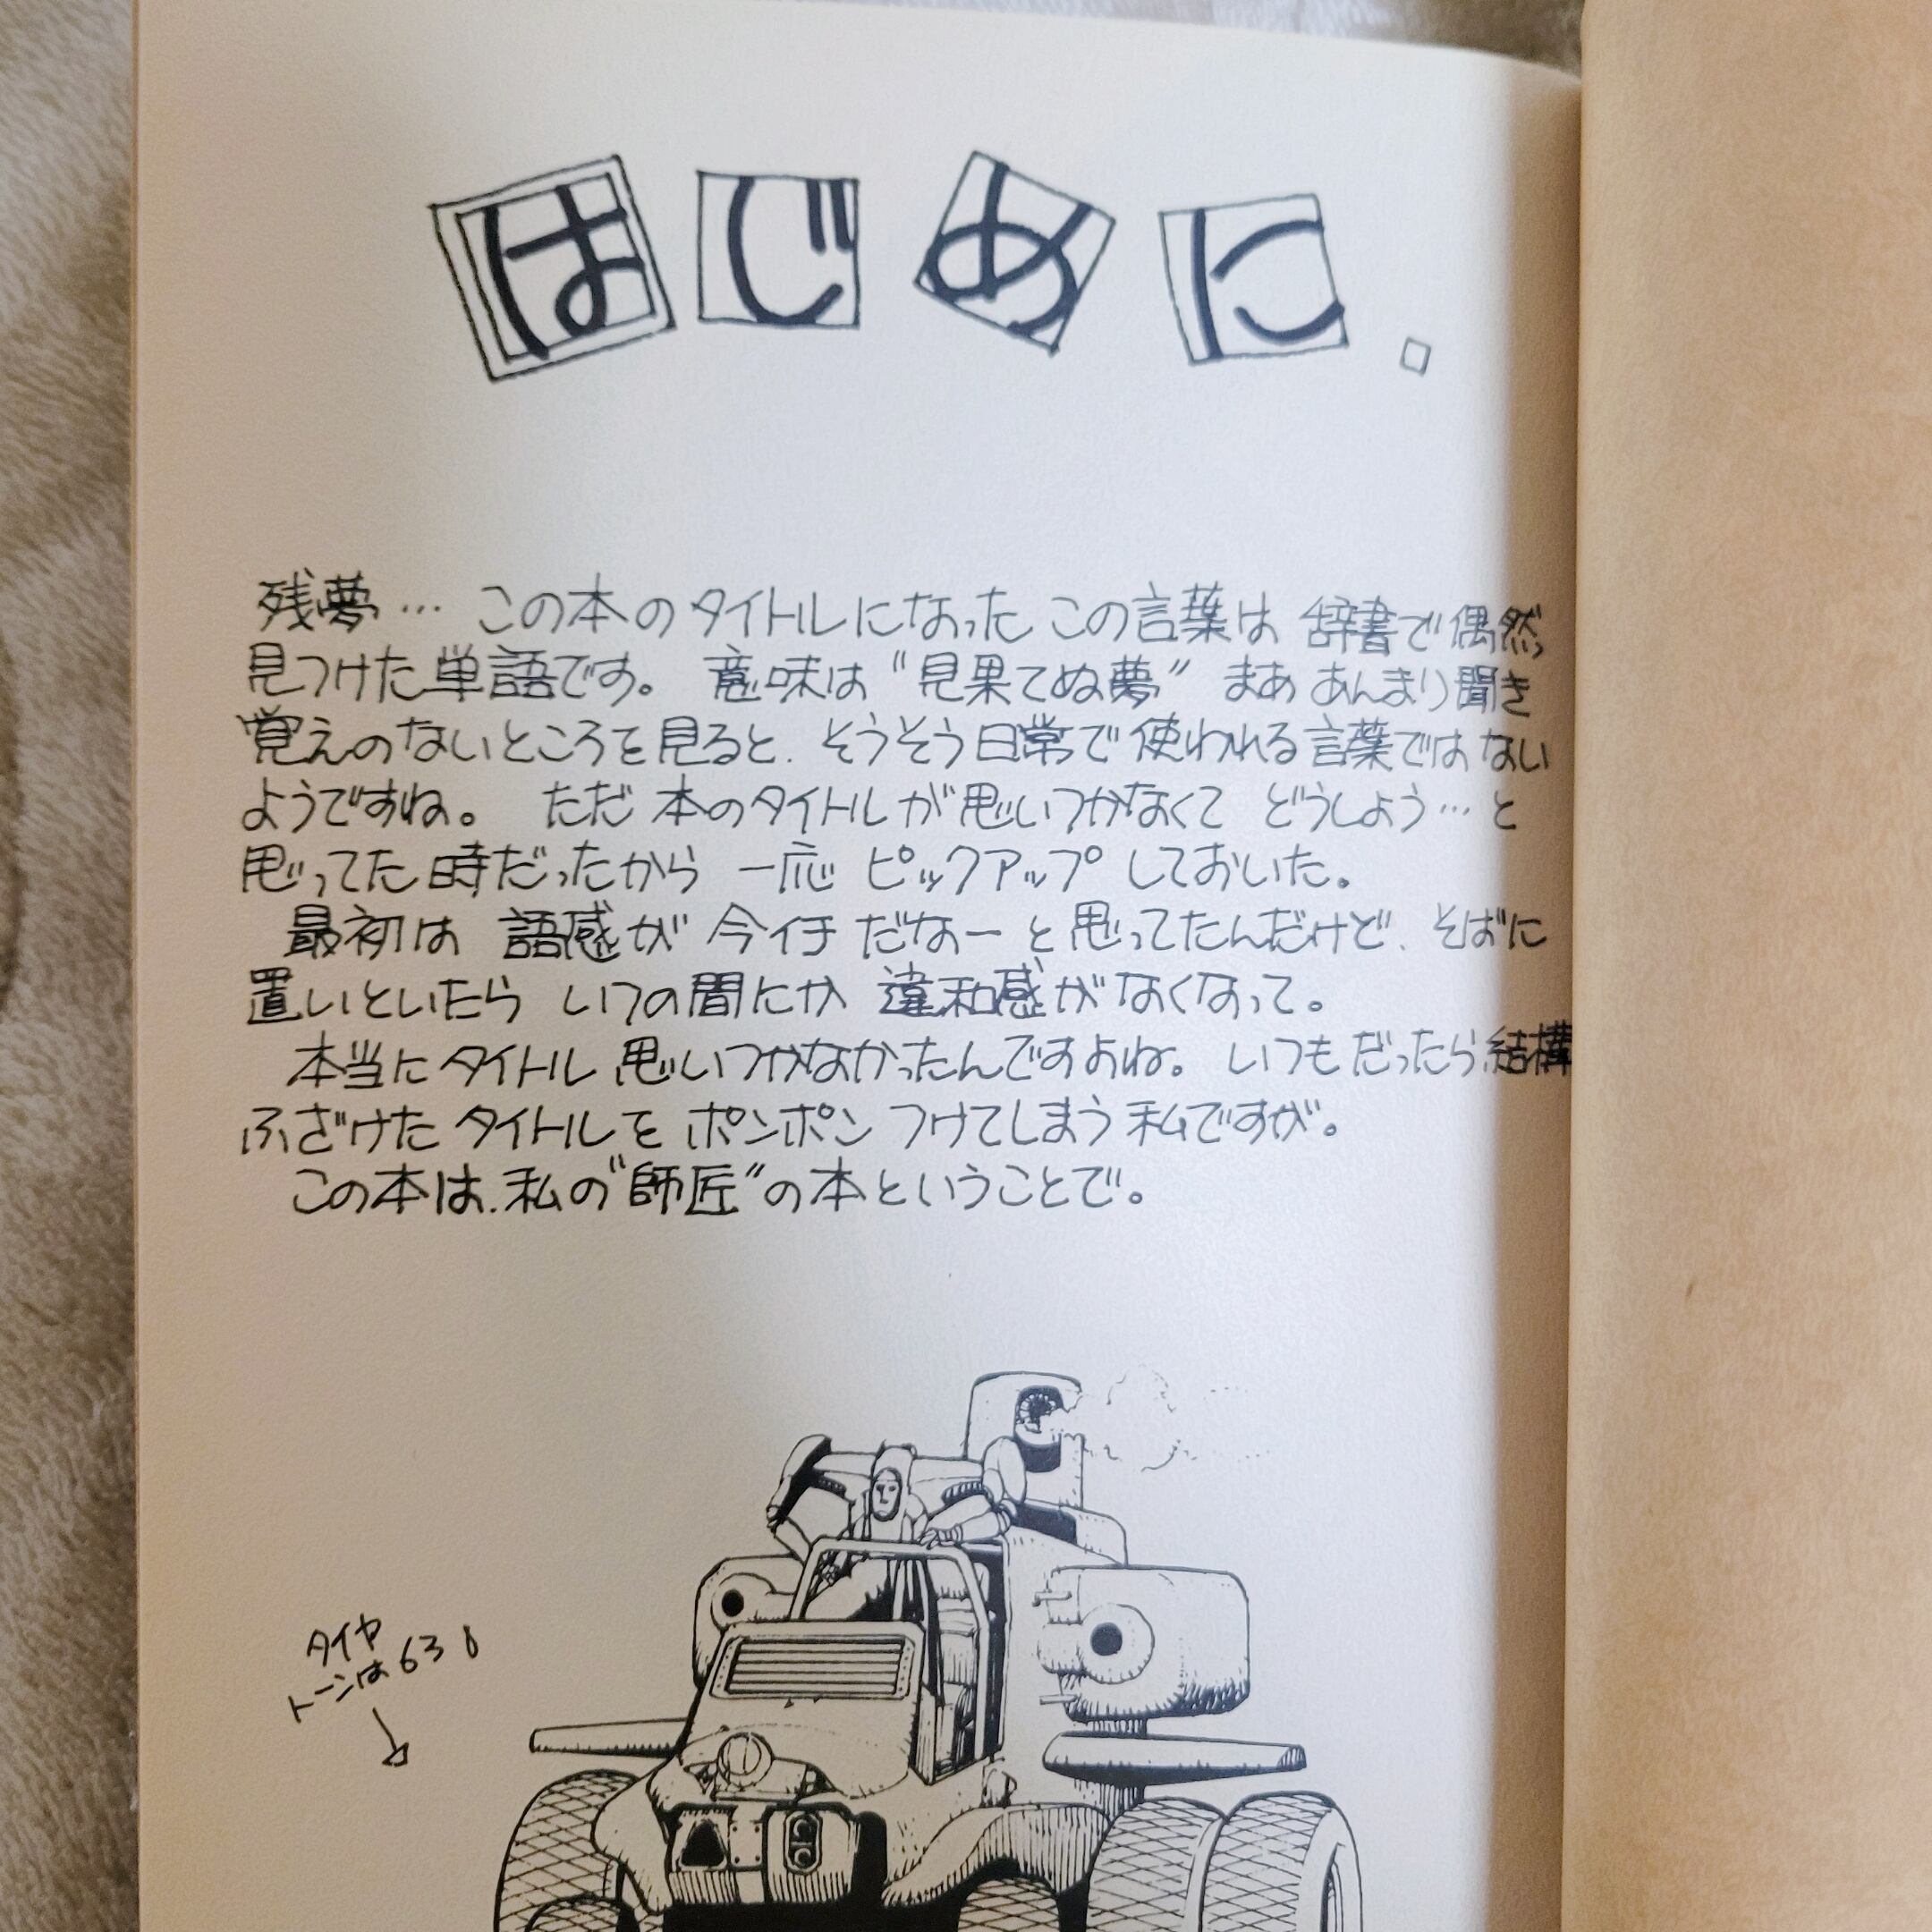 はじめに。
残夢… この本のタイトルになった この言葉は 辞書で偶然
見つけた単語です。 意味は“見果てぬ夢” まあ あんまり聞き
覚えのないところを見ると、そうそう日常で使われる言葉ではない
ようですね。 ただ 本のタイトルが思いつかなくて どうしよう…と
思ってた時だったから 一応 ピックアップ しておいた。
最初は 語感が 今イチ だなーと思ってたんだけど、そばに
置いといたら いつの間にか 違和感がなくなって。
本当にタイトル思いつかなかったんですよね。 いつもだったら結構
ふざけたタイトルを ポンポン つけてしまう私ですが。
この本は、私の“師匠”の本ということで。
タイヤ
トーンは63